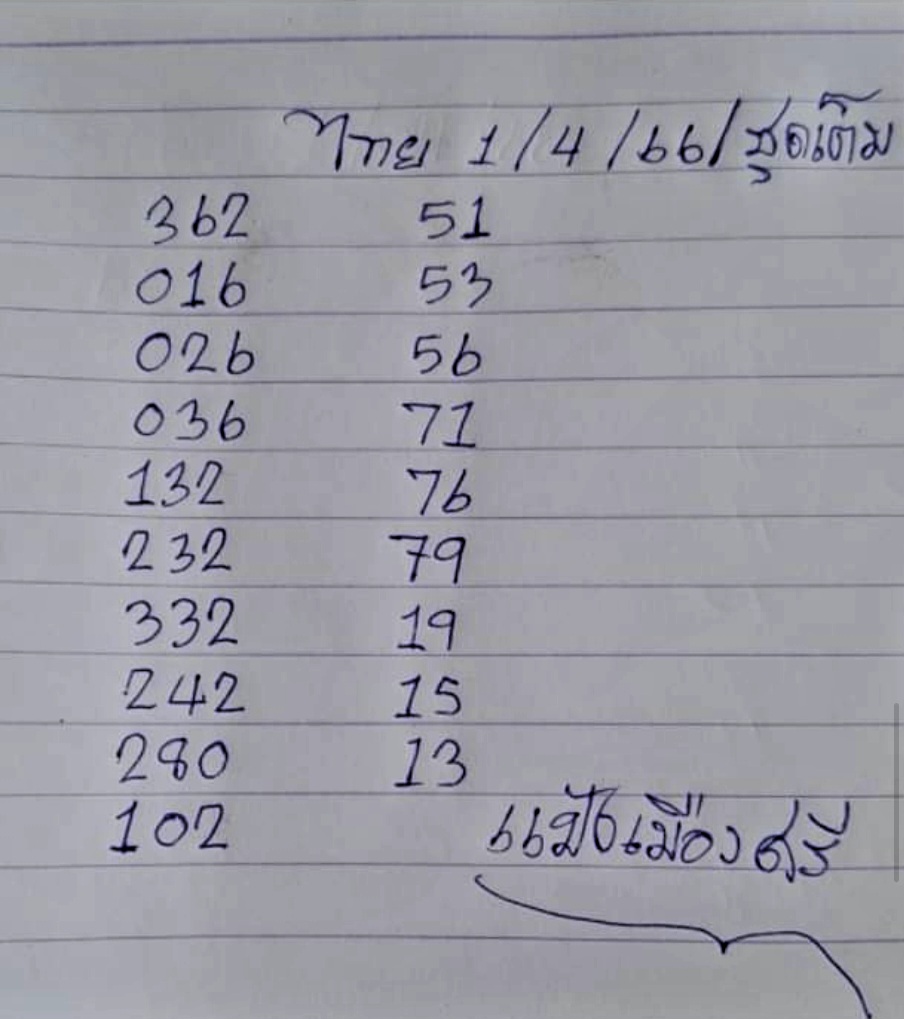 ไทย 1/4/66/ชุดเต็ม
362 51
016 53
026 56
036 71
132 76
232 79
332 19
242 15
280 13
102
แป้งเมืองศรี